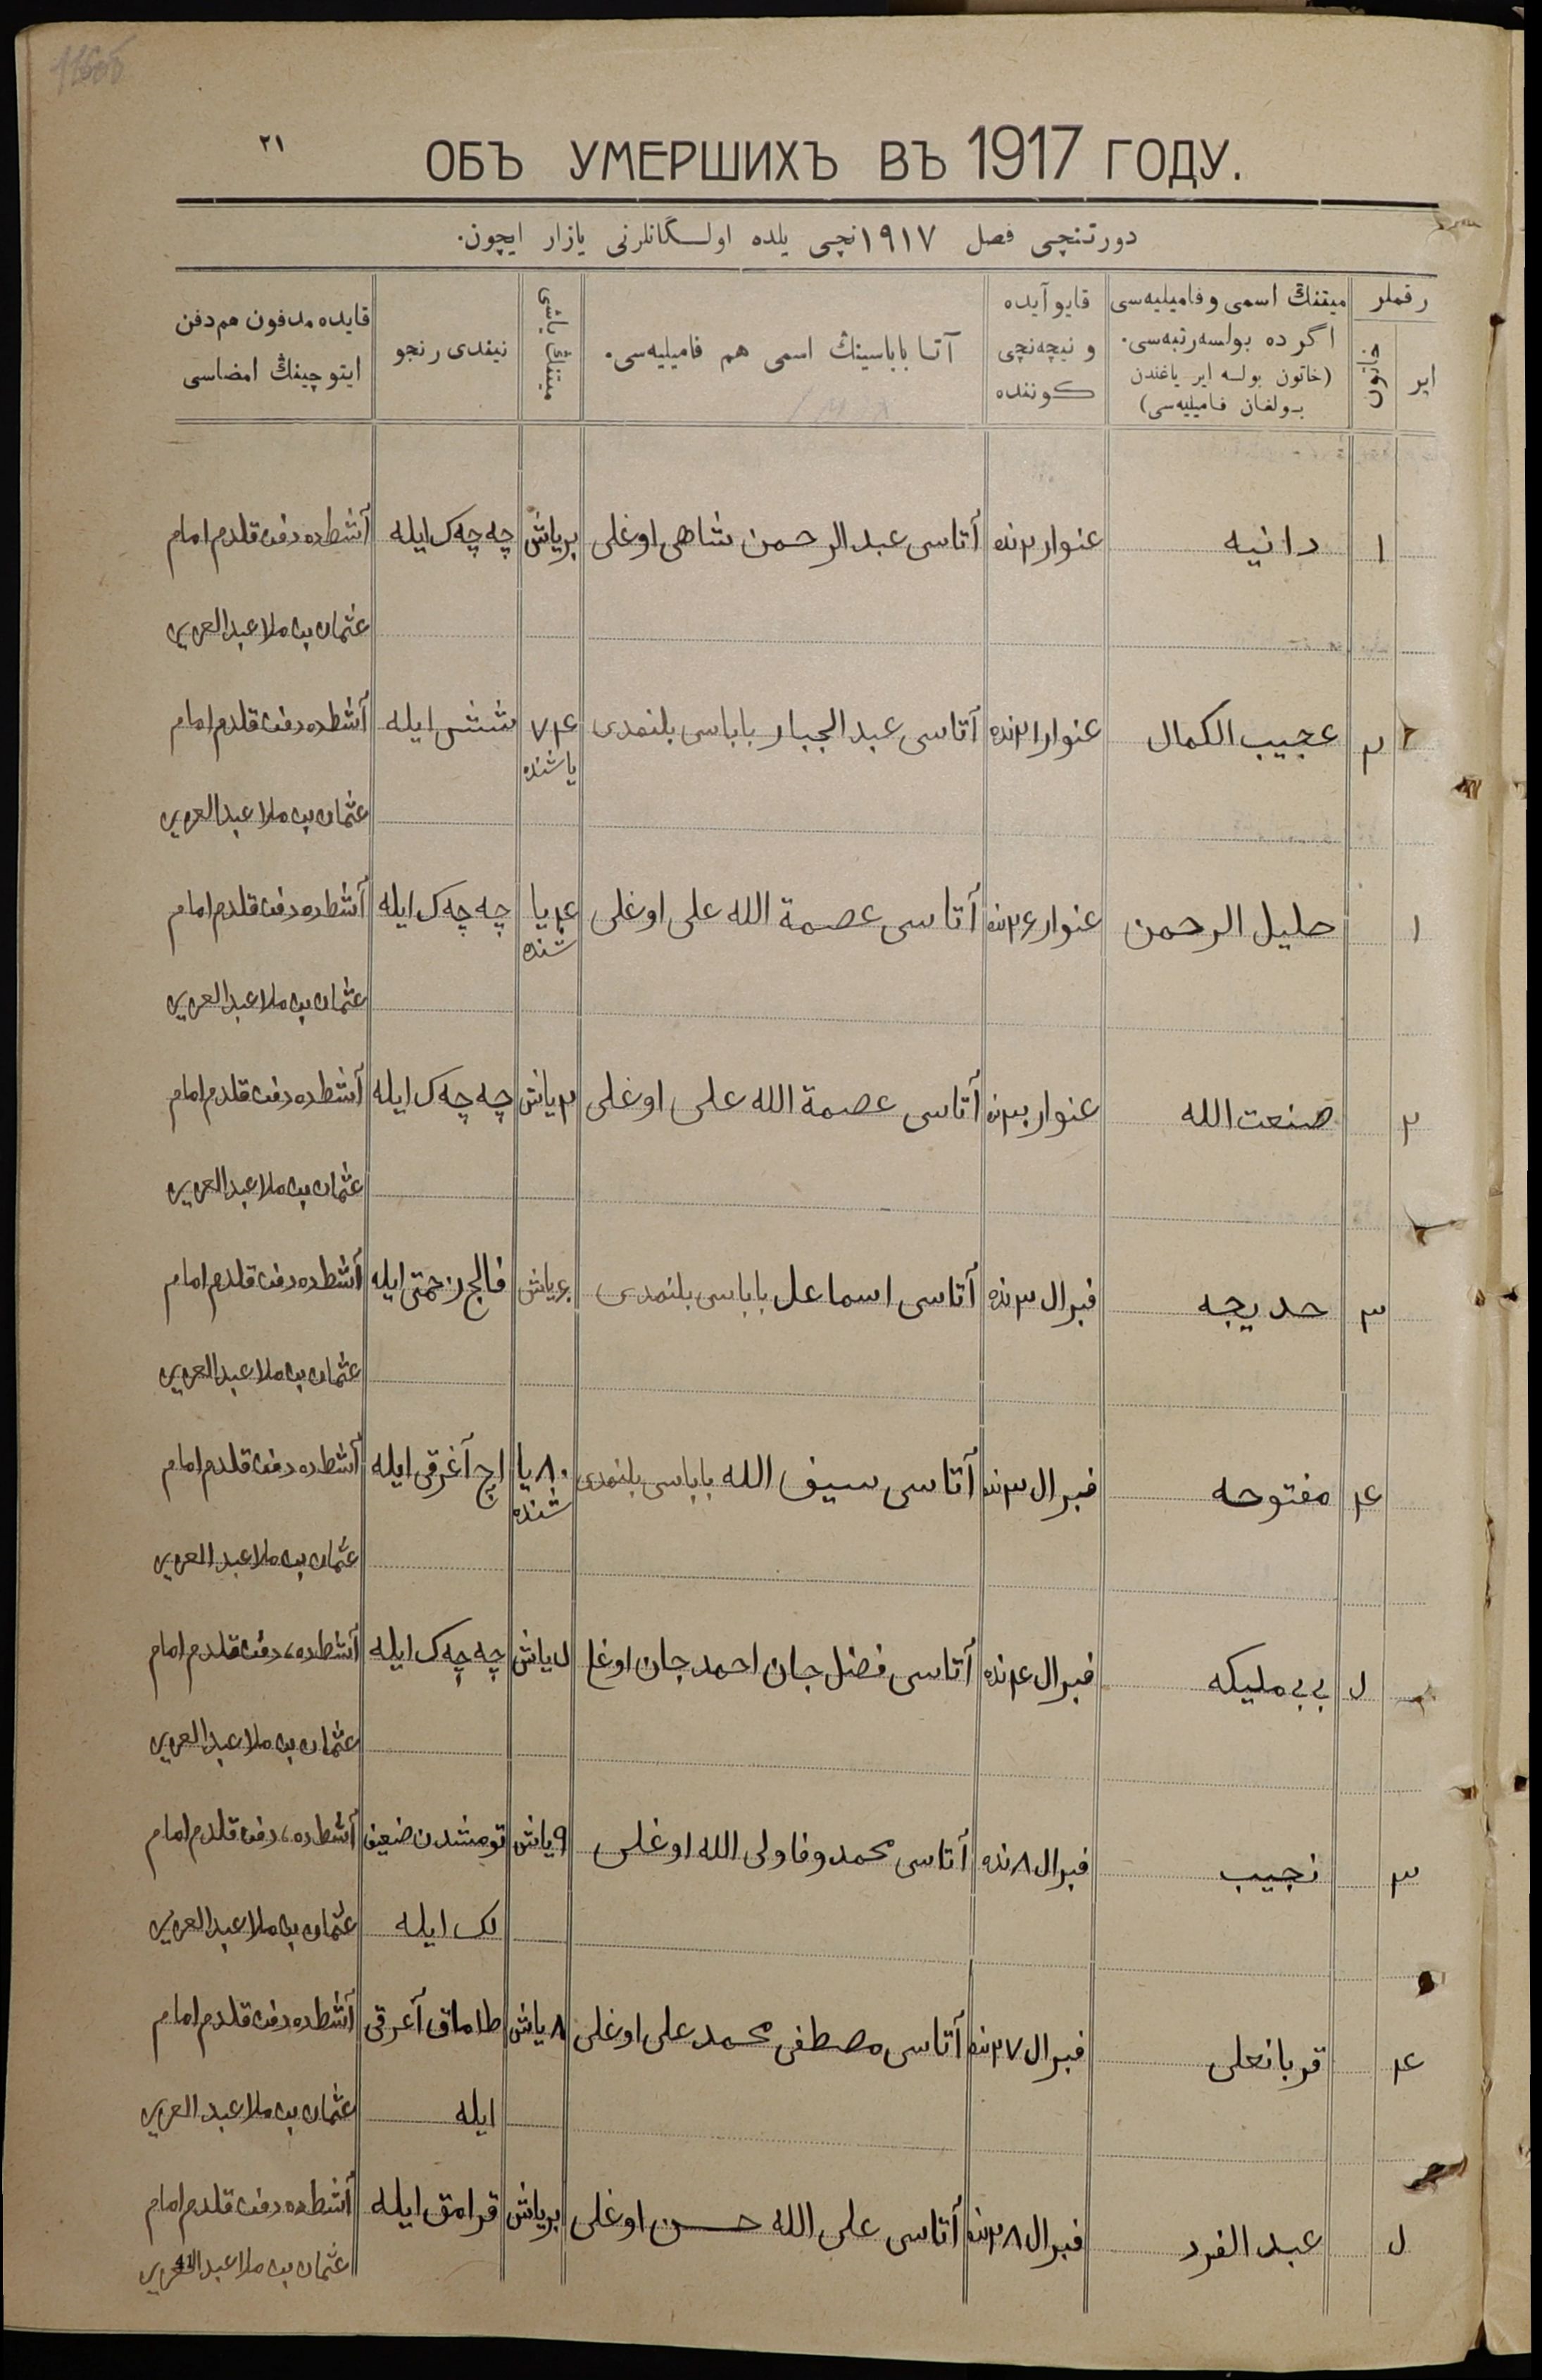 ٢١
ОБЪ УМЕРШИХЪ ВЪ 1917 ГОДУ.
دورتنچی فصل ١٩١٧نچی یلده اولـگانلرنی یازار ایچون.
رقملر
ایر
خاتون
میتنڭ اسمی و فامیلیه‌سی
اگر ده بولسه رتبه‌سی.
(خاتون بولسه ایر یاغندن
بولغان فامیلیه‌سی)
قایو آیده
و نیچه‌نچی
کوننده
آتا باباسینڭ اسمی هم فامیلیه‌سی.
میتنڭ یاشی
نیندی رنجو
قایده مدفون هم دفن
ایتوچینڭ امضاسی
١ دانیه عنوار ٢نده آتاسی عبد الرحمن شاهی اوغلی بریاش چه چه ک ایله آشطده دفن قلدم امام
عثمان بن ملا عبد العزیز
٢ عجیب الکمال عنوار ٢١نده آتاسی عبد الجبار باباسی بلنمدی ٧٤ شش ایله آشطده دفن قلدم امام
یاشنده
عثمان بن ملا عبد العزیز
١ حلیل الرحمن عنوار ٢٤نده آتاسی عصمة الله علی اوغلی ٤ یا چه چه ک ایله آشطده دفن قلدم امام
شنده
عثمان بن ملا عبد العزیز
٢ صنعت الله عنوار آتاسی عصمة الله علی اوغلی ٢ یاش چه چه ک ایله آشطده دفن قلدم امام
عثمان بن ملا عبد العزیز
٣ حدیجه فبرال ٣نده آتاسی اسماعل باباسی بلنمدی یاش فالج زحمتی ایله آشطده دفن قلدم امام
عثمان بن ملا عبد العزیز
٤ مفتوحه فبرال ٣نده آتاسی سیف الله باباسی بلنمدی ٨٠ یا اچ آغرقی ایله آشطده دفن قلدم امام
شنده
عثمان بن ملا عبد العزیز
۵ بی بی ملیکه فبرال ٤نده آتاسی فضل جان احمد جان اوغلی ۵ یاش چه چه ک ایله آشطده دفن قلدم امام
عثمان بن ملا عبد العزیز
٣ نجیب فبرال ٨نده آتاسی محمد وفا ولی الله اوغلی ٩ یاش تومشدن ضعیف آشطده دفن قلدم امام
لک ایله عثمان بن ملا عبد العزیز
٤ قربانعلی فبرال ٢٧نده آتاسی مصطفی محمد علی اوغلی ٨ یاش طاماق آغرقی آشطده دفن قلدم امام
ایله عثمان بن ملا عبد العزیز
۵ عبد الفرد فبرال ٢٨نده آتاسی علی الله حسن اوغلی بریاش قرامق ایله آشطده دفن قلدم امام
عثمان بن ملا عبد العزیز